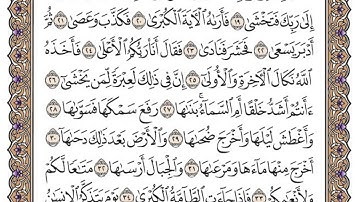 إِلَىٰ رَبِّكَ فَتَخْشَىٰ ١٩ فَأَرَىٰهُ ٱلْـَٔايَةَ ٱلْكُبْرَىٰ ٢٠ فَكَذَّبَ وَعَصَىٰ ٢١ ثُمَّ
أَدْبَرَ يَسْعَىٰ ٢٢ فَحَشَرَ فَنَادَىٰ ٢٣ فَقَالَ أَنَا۠ رَبُّكُمُ ٱلْأَعْلَىٰ ٢٤ فَأَخَذَهُ
ٱللَّهُ نَكَالَ ٱلْـَٔاخِرَةِ وَٱلْأُولَىٰٓ ٢٥ إِنَّ فِى ذَٰلِكَ لَعِبْرَةً لِّمَن يَخْشَىٰٓ ٢٦
ءَأَنتُمْ أَشَدُّ خَلْقًا أَمِ ٱلسَّمَآءُ ۚ بَنَىٰهَا ٢٧ رَفَعَ سَمْكَهَا فَسَوَّىٰهَا ٢٨
وَأَغْطَشَ لَيْلَهَا وَأَخْرَجَ ضُحَىٰهَا ٢٩ وَٱلْأَرْضَ بَعْدَ ذَٰلِكَ دَحَىٰهَآ ٣٠
أَخْرَجَ مِنْهَا مَآءَهَا وَمَرْعَىٰهَا ٣١ وَٱلْجِبَالَ أَرْسَىٰهَا ٣٢ مَتَٰعًا لَّكُمْ
وَلِأَنْعَٰمِكُمْ ٣٣ فَإِذَا جَآءَتِ ٱلطَّآمَّةُ ٱلْكُبْرَىٰ ٣٤ يَوْمَ يَتَذَكَّرُ ٱلْإِنسَٰنُ